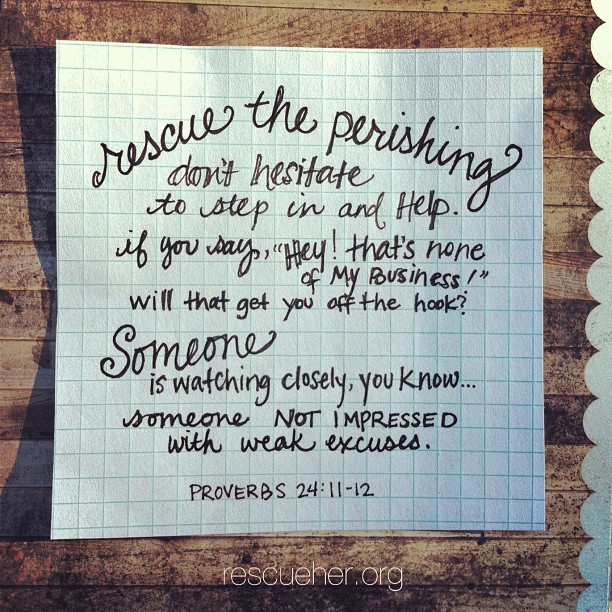 rescue the perishing
don't hesitate
to step in and Help.
if you say, "Hey! that's none
of My Business!"
will that get you off the hook?
Someone
is watching closely, you know...
someone NOT IMPRESSED
with weak excuses.
PROVERBS 24:11-12
rescueher.org